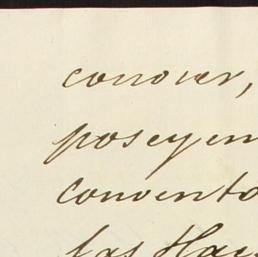 conocer,
poseyen
convento
las Hay